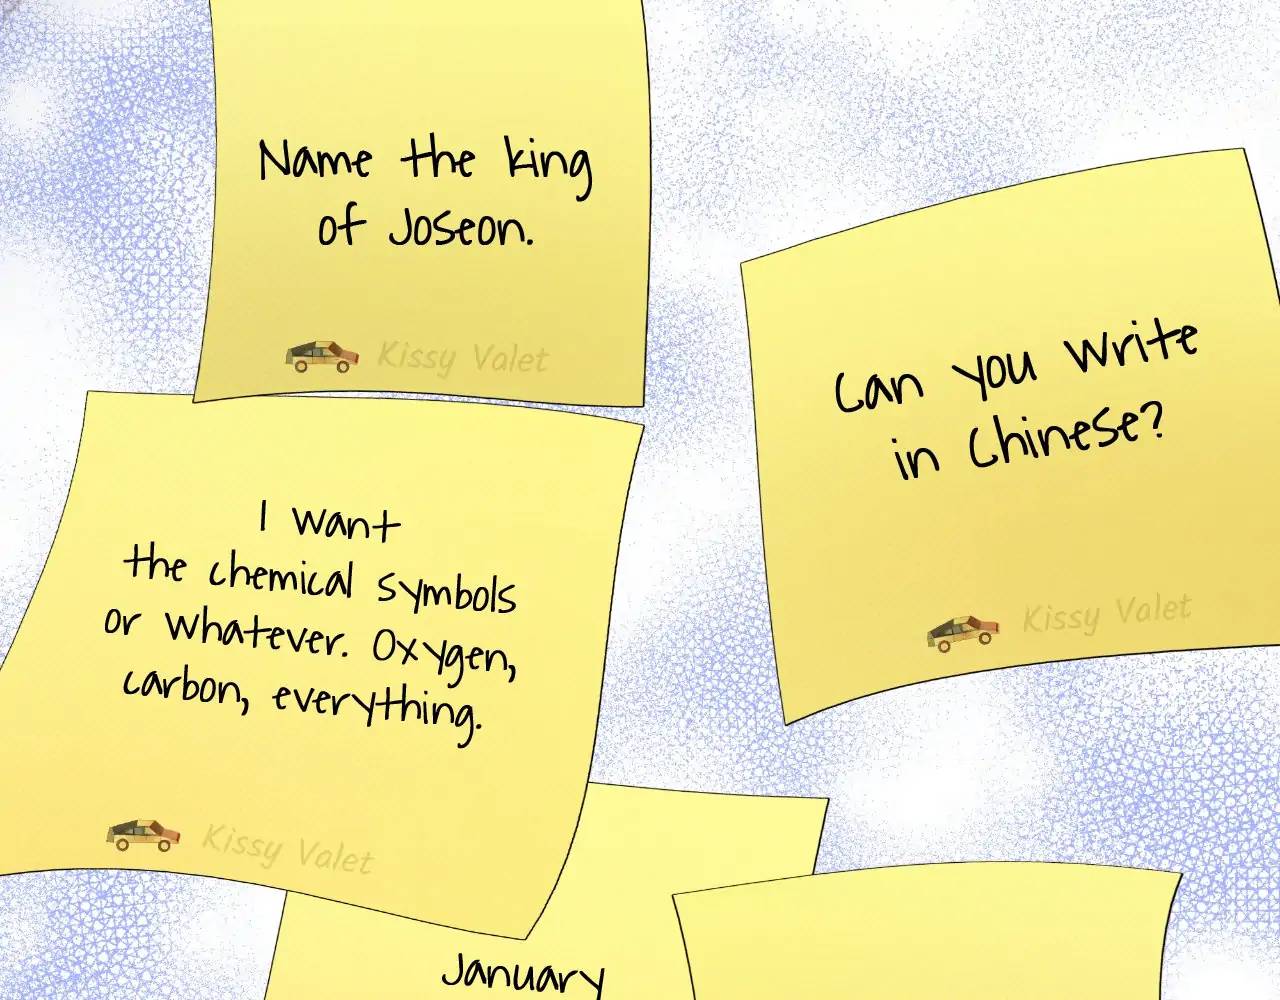 Name the king
of Joseon.
Kissy Valet
Can you write
in Chinese?
Kissy Valet
I want
the chemical symbols
or whatever. Oxygen,
carbon, everything.
Kissy Valet
January